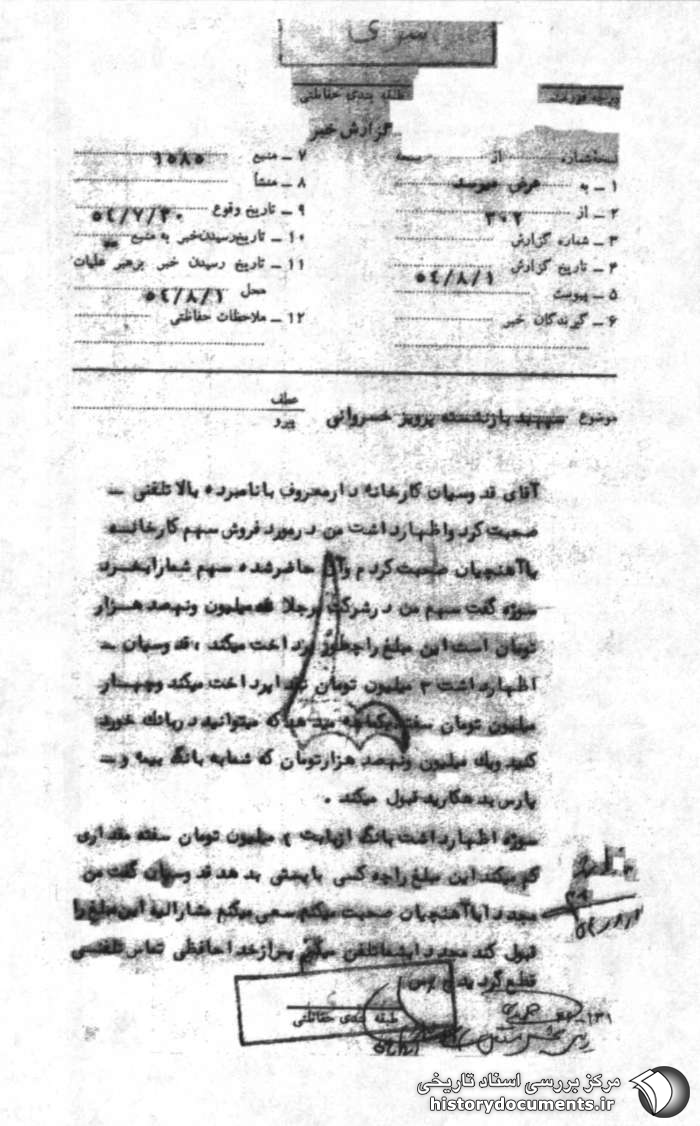 سری
طبقه بندی حفاظتی
درجه فوریت
گزارش خبر
نسخه شماره از صفحه
۱ ـ به عرض میرسد
۲ ـ از ۳۰۲
۳ ـ شماره گزارش
۴ ـ تاریخ گزارش ۵٤/۸/۱
۵ ـ پیوست
۶ ـ گیرندگان خبر
۷ ـ منبع ۱۵۸۵
۸ ـ منشأ
۹ ـ تاریخ وقوع ۵٤/۷/۳۰
۱۰ ـ تاریخ رسیدن خبر به منبع
۱۱ ـ تاریخ رسیدن خبر برهبر عملیات
محل ۵٤/۸/۱
۱۲ ـ ملاحظات حفاظتی
موضوع سپهبد بازنشسته پرویز خسروانی
عطف
پیرو
آقای قدوسیان کارخانه دار معروف با نامبرده بالا تلفنی ـ
صحبت کرد و اظهار داشت من در مورد فروش سهم کارخانه
با آهنچیان صحبت کردم و حاضر شده سهم شما را بخرد
سوژه گفت سهم من در شرکت میلیون و نهصد هزار
تومان است این مبلغ را چطور پرداخت میکند ، قدوسیان ـ
اظهار داشت ۲ میلیون تومان نقدا پرداخت میکند و چهار
میلیون تومان سفته میدهد که میتوانید در بانک خورد
کنید و یک میلیون و نهصد هزار تومان که شما به بانک بیمه و ـ
پارس بدهکارید قبول میکند .
سوژه اظهار داشت بانک از بابت ٤ میلیون تومان سفته مقداری
کم میکند این مبلغ را چه کسی بایستی بدهد قدوسیان گفت من
مجددا با آهنچیان صحبت میکنم سعی میکنم مشارالیه این مبلغ را
قبول کند مجددا بشما تلفن میکنم پس از خداحافظی تماس تلفنی
قطع گردید
طبقه بندی حفاظتی
مرکز بررسی اسناد تاریخی
historydocuments.ir